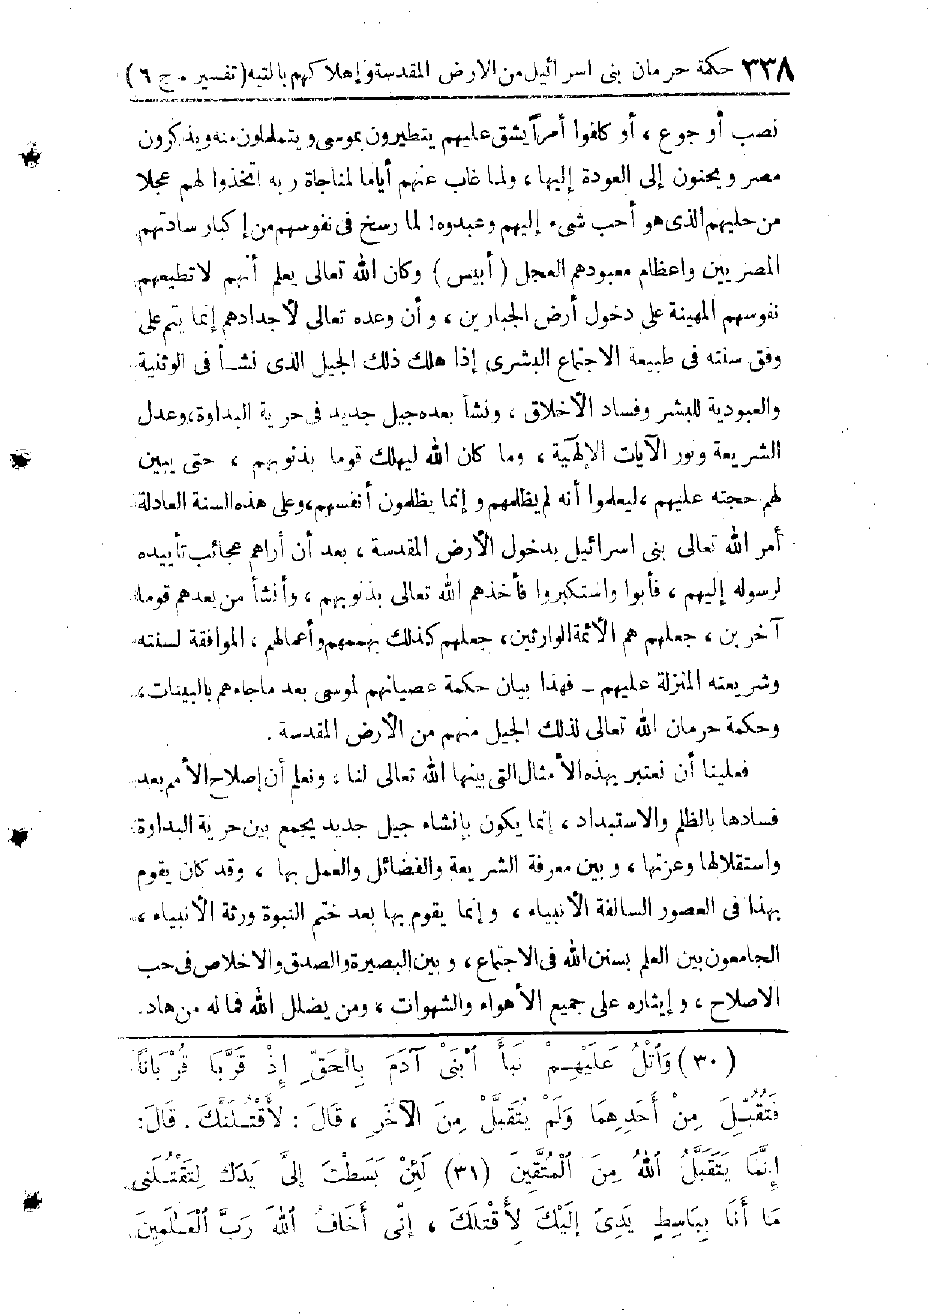 ٣٣٨ حكمة حرمان بنى اسرائيل من الارض المقدسة وإهلاكهم بالتيه (تفسير . ج ٦)
نصب أو جوع ، أو كلفوا أمراً يشق عليهم يتطيرون بموسى ويتململون منه ويذكرون
مصر ويحنون إلى العودة إليها ، ولما غاب عنهم أياما لمناجاة ربه اتخذوا لهم عجلا
من حليهم الذى هو أحب شىء إليهم وعبدوه ! لما رسخ فى نفوسهم من إكبار سادتهم
المصريين واعظام معبودهم العجل ( أبيس ) وكان الله تعالى يعلم أنهم لا تطيعهم
نفوسهم المهينة على دخول أرض الجبارين ، وأن وعده تعالى لأجدادهم إنما يتم على
وفق سنته فى طبيعة الاجتماع البشرى إذا هلك ذلك الجيل الذى نشأ فى الوثنية
والعبودية للبشر وفساد الأخلاق ، ونشأ بعده جيل جديد فى حرية البداوة ، وعدل
الشريعة ونور الآيات الإلهية ، وما كان الله ليهلك قوما بذنوبهم ، حتى يبين
لهم حجته عليهم ، ليعلموا أنه لم يظلمهم وإنما يظلمون أنفسهم ، وعلى هذه السنة العادلة
أمر الله تعالى بنى اسرائيل بدخول الأرض المقدسة ، بعد أن أراهم عجائب تأييده
لرسوله إليهم ، فأبوا واستكبروا فأخذهم الله تعالى بذنوبهم ، وأنشأ من بعدهم قوما
آخرين ، جعلهم هم الأئمة الوارثين ، جعلهم كذلك بهممهم وأعمالهم ، الموافقة لسنته
وشريعته المنزلة عليهم ــ فهذا بيان حكمة عصيانهم لموسى بعد ما جاءهم بالبينات ،
وحكمة حرمان الله تعالى لذلك الجيل منهم من الأرض المقدسة .
فعلينا أن نعتبر بهذه الأمثال التى بينها الله تعالى لنا ، ونعلم أن إصلاح الأمم بعد
فسادها بالظلم والاستبداد ، إنما يكون بإنشاء جيل جديد يجمع بين حرية البداوة
واستقلالها وعزتها ، وبين معرفة الشريعة والفضائل والعمل بها ، وقد كان يقوم
بهذا فى العصور السالفة الأنبياء ، وإنما يقوم بها بعد ختم النبوة ورثة الأنبياء ،
الجامعون بين العلم بسنن الله فى الاجتماع ، وبين البصيرة والصدق والاخلاص فى حب
الاصلاح ، وإيثاره على جميع الأهواء والشهوات ، ومن يضلل الله فما له من هاد .
(٣٠) وَٱتْلُ عَلَيْهِمْ نَبَأَ ٱبْنَىْ آدَمَ بِالْحَقِّ إِذْ قَرَّبَا قُرْبَانًا
فَتُقُبِّلَ مِنْ أَحَدِهِمَا وَلَمْ يُتَقَبَّلْ مِنَ الآخَرِ ، قَالَ : لَأَقْتُلَنَّكَ . قَالَ :
إِنَّمَا يَتَقَبَّلُ اللهُ مِنَ الْمُتَّقِينَ (٣١) لَئِنْ بَسَطْتَ إِلَىَّ يَدَكَ لِتَقْتُلَنِى
مَا أَنَا بِبَاسِطٍ يَدِىَ إِلَيْكَ لِأَقْتُلَكَ ، إِنِّى أَخَافُ اللهَ رَبَّ الْعَـٰلَمِينَ